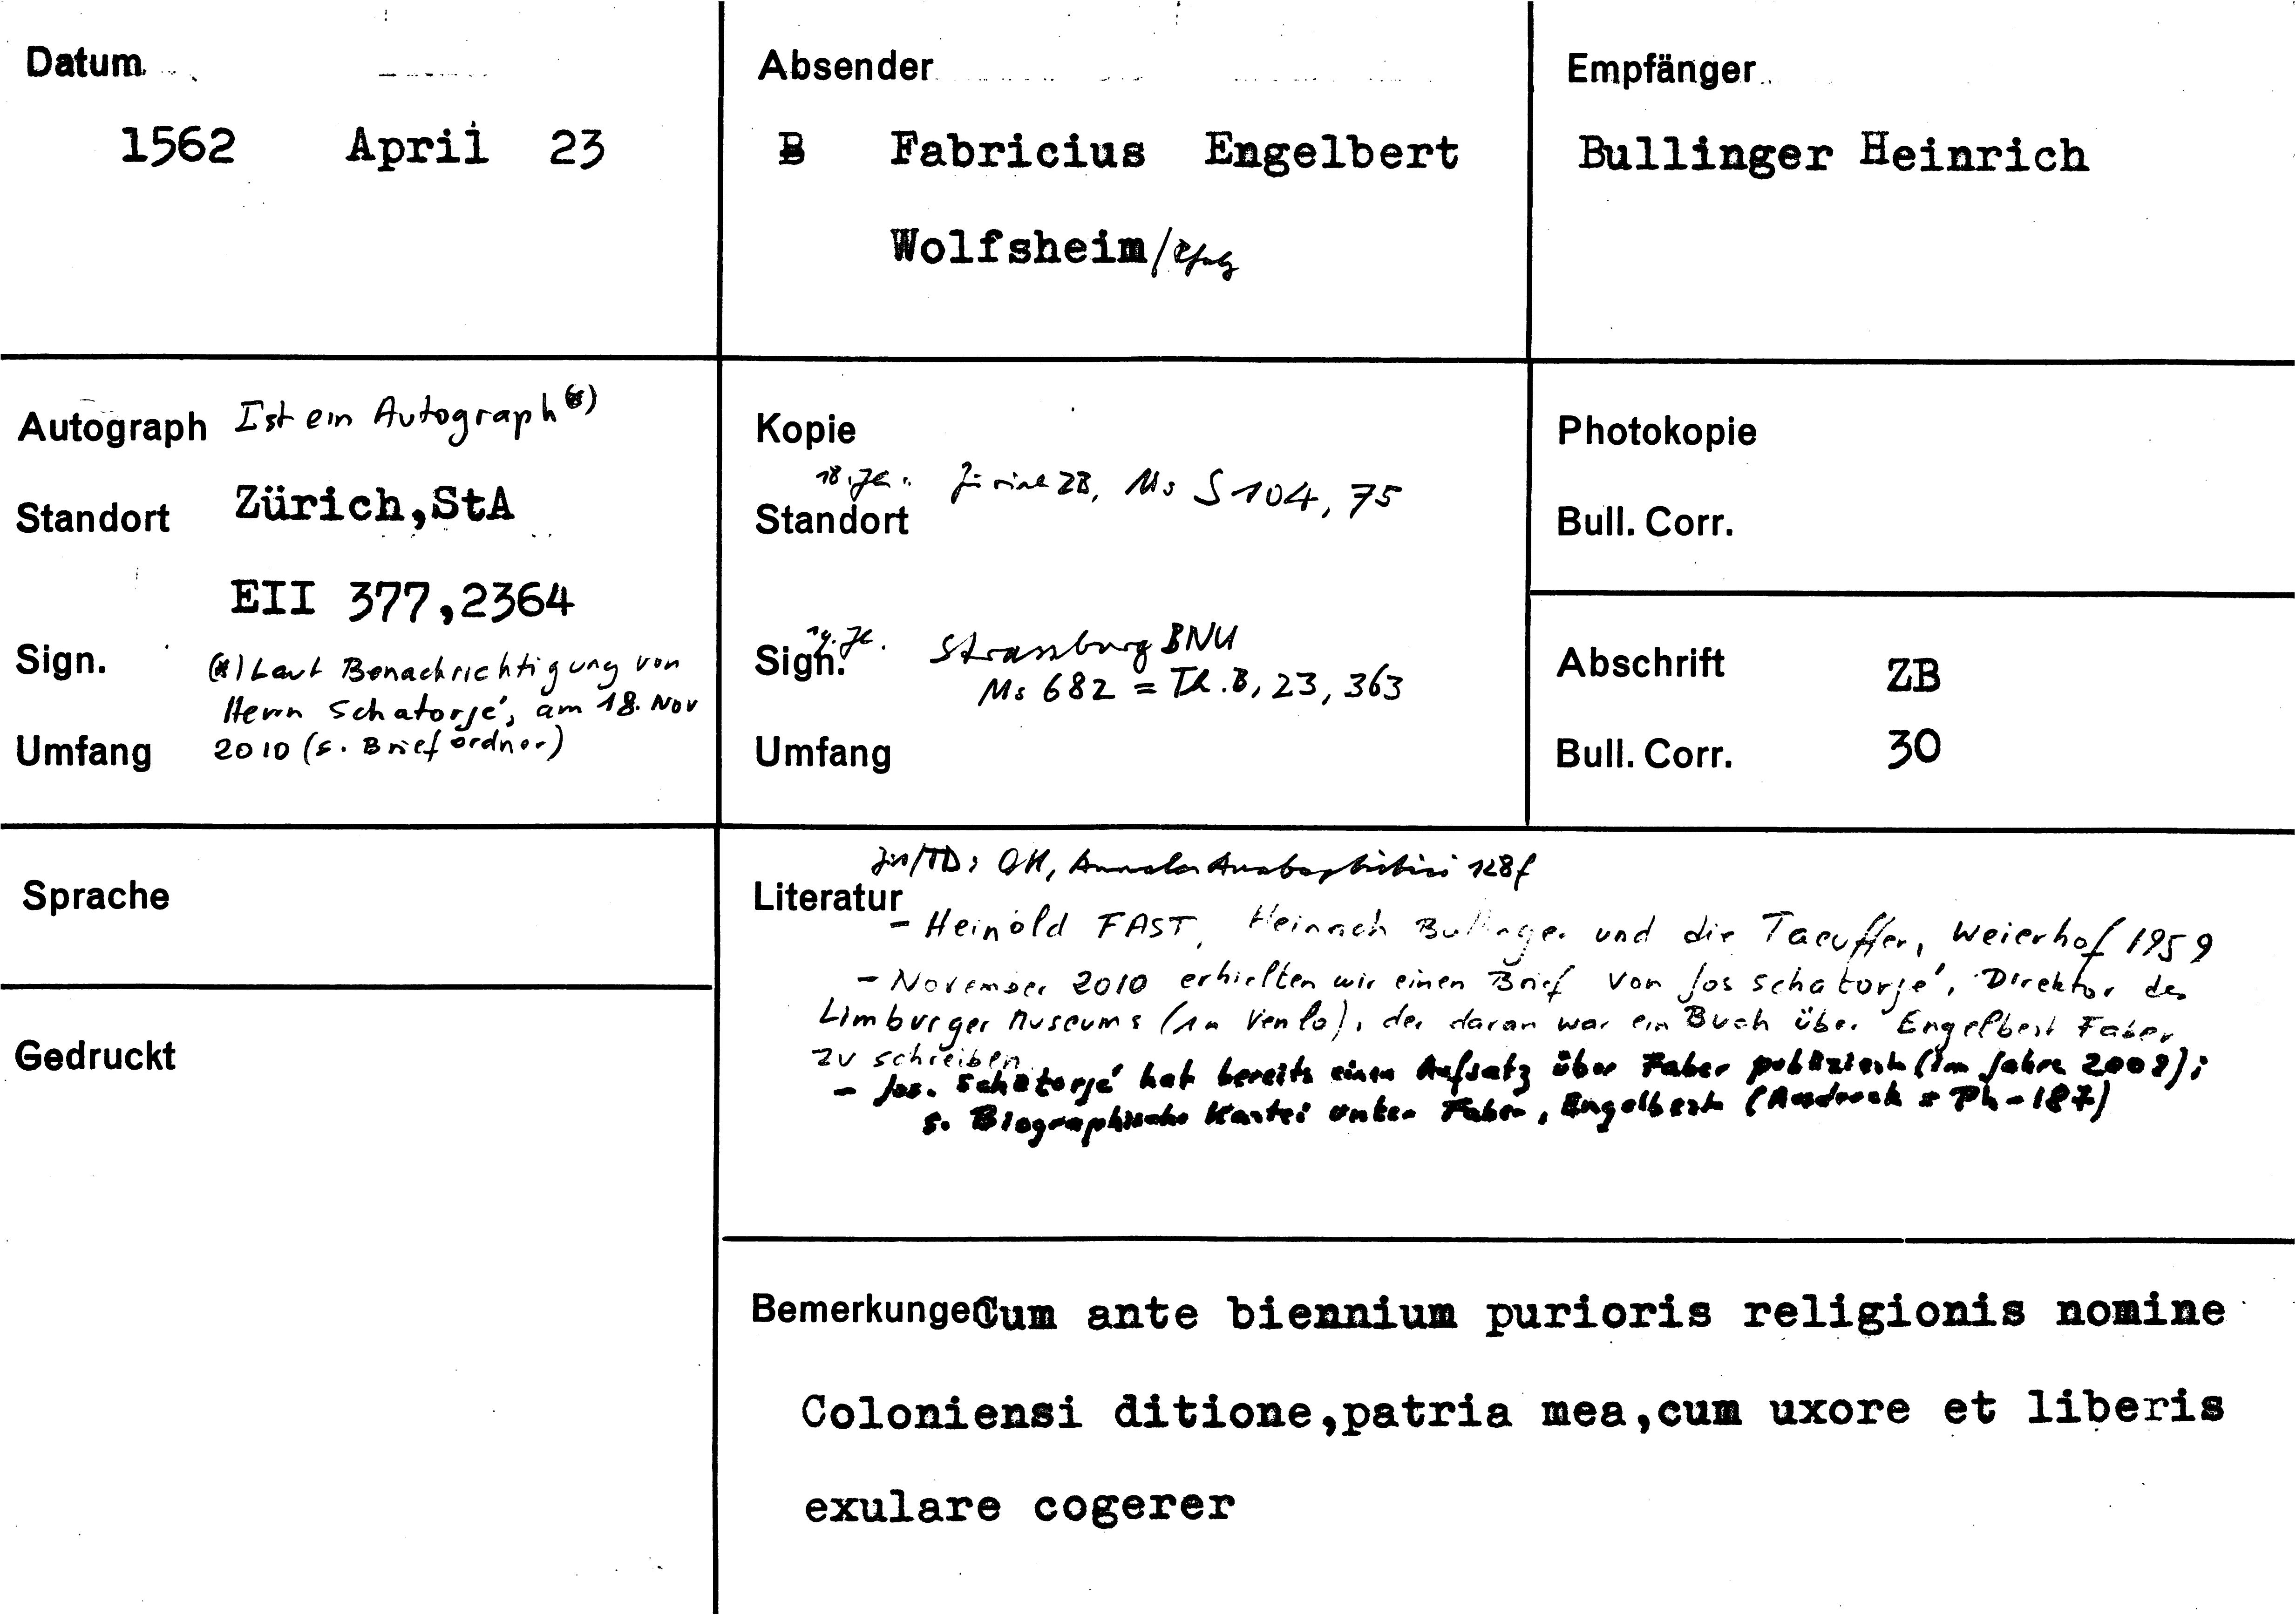 Datum
1562 April 23
Absender
B Fabricius Engelbert
Wolfsheim/Pfalz
Empfänger
Bullinger Heinrich
Autograph Ist ein Autograph (*)
Standort Zürich,StA
EII 377,2364
Sign.
(*) Laut Benachrichtigung von
Herrn Schatorjé, am 18. Nov
2010 (s. Briefordner)
Umfang
Kopie
18. Jh. Zürich ZB, Ms S 104, 75
Standort
19. Jh. Strassburg BNU
Sign. Ms 682 = Th. B, 23, 363
Umfang
Photokopie
Bull. Corr.
Abschrift ZB
Bull. Corr. 30
Sprache
Gedruckt
128f
Literatur
- Heinold FAST, Heinrich Bullinger und die Taeuffer, Weierhof 1959
- November 2010 erhielten wir einen Brief von Jos Schatorjé, Direktor des
Limburger Museums (in Venlo), der daran war ein Buch über Engelbert Faber
zu schreiben.
- Jos. Schatorjé hat bereits einen Aufsatz über Faber publiziert (im Jahre 2008);
s. Biographische Kartei unter Faber, Engelbert (Ausdruck = Ph-187)
Bemerkungen Cum ante biennium purioris religionis nomine
Coloniensi ditione,patria mea,cum uxore et liberis
exulare cogerer